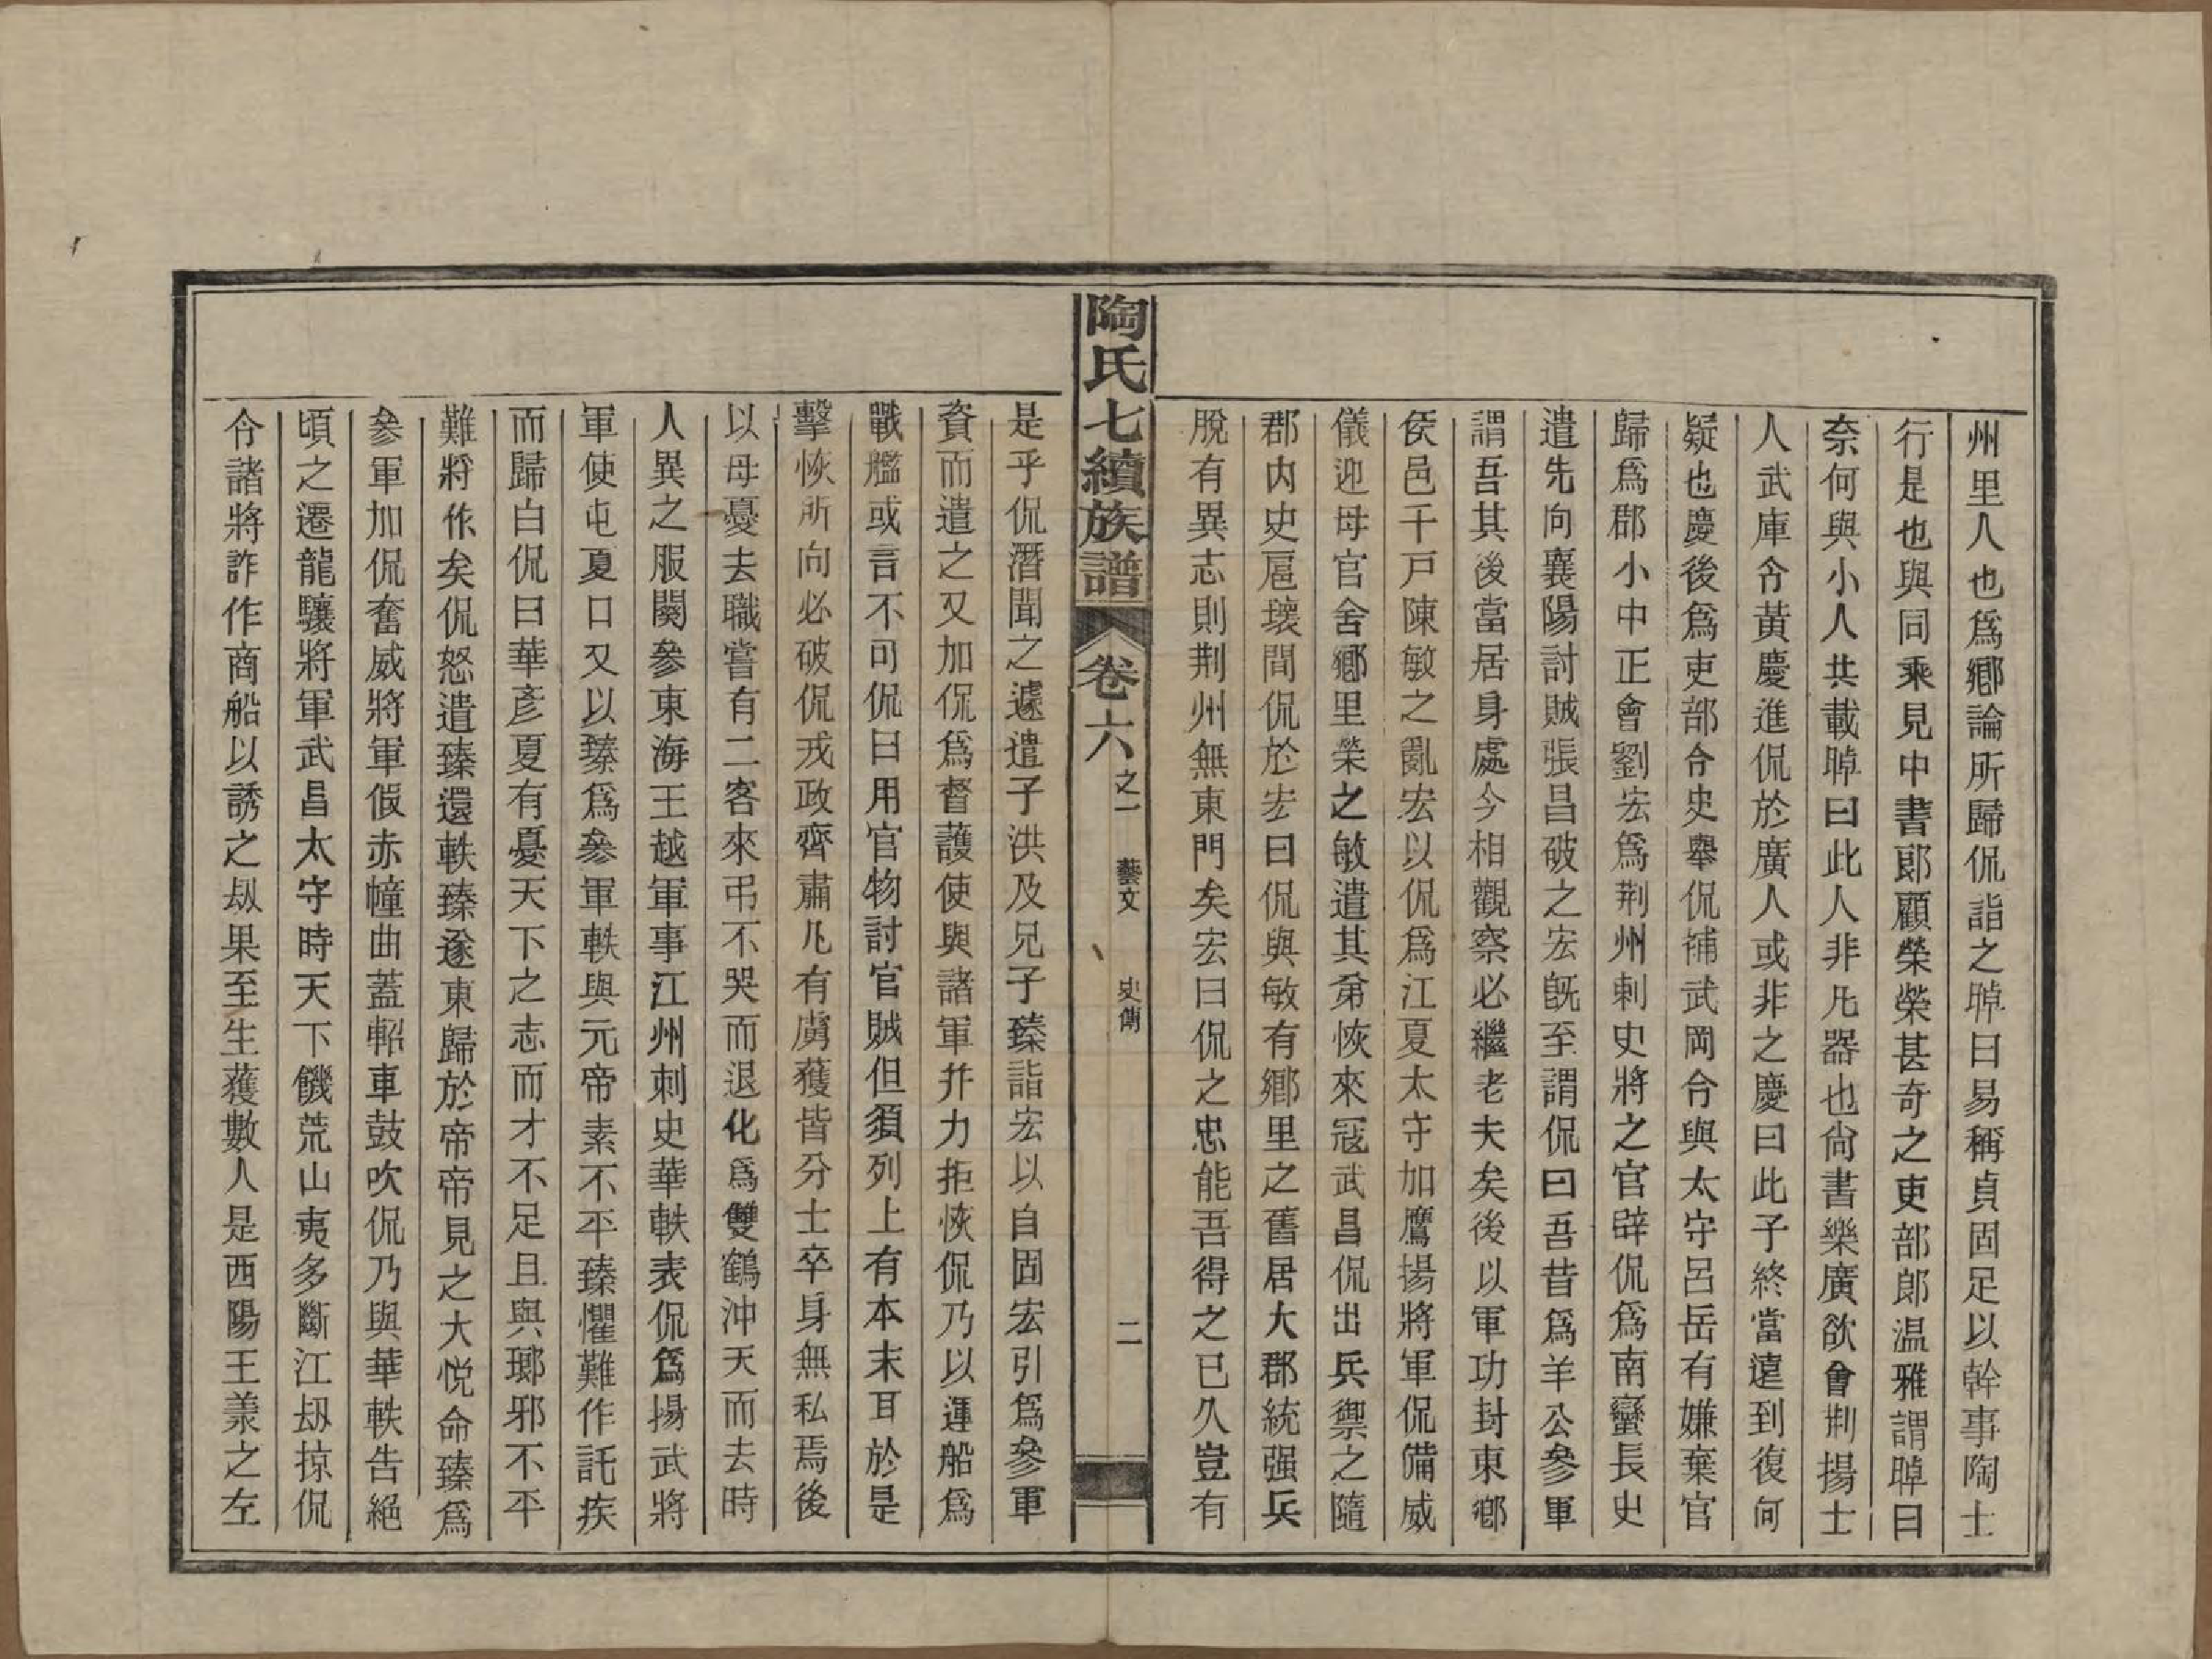 州里人也爲鄉論所歸侃詣之晫曰易稱貞固足以幹事陶士
行是也與同乘見中書郎顧榮榮甚奇之吏部郎温雅謂晫曰
奈何與小人共載晫曰此人非凡器也尙書樂廣欲會荆揚士
人武庫令黃慶進侃於廣人或非之慶曰此子終當遠到復何
疑也慶後爲吏部令史舉侃補武岡令與太守呂岳有嫌棄官
歸爲郡小中正會劉宏爲荆州刺史將之官辟侃爲南蠻長史
遣先向襄陽討賊張昌破之宏旣至謂侃曰吾昔爲羊公參軍
謂吾其後當居身處今相觀察必繼老夫矣後以軍功封東鄉
侯邑千戸陳敏之亂宏以侃爲江夏太守加鷹揚將軍侃備威
儀迎母官舍鄉里榮之敏遣其弟恢來冦武昌侃出兵禦之隨
郡内史扈壞間侃於宏曰侃與敏有鄉里之舊居大郡統强兵
脫有異志則荆州無東門矣宏曰侃之忠能吾得之已久豈有
陶氏七續族譜 卷六之一 藝文 史傳 二
是乎侃潛聞之遽遣子洪及兄子臻詣宏以自固宏引爲參軍
資而遣之又加侃爲督護使與諸軍幷力拒恢侃乃以運船爲
戰艦或言不可侃曰用官物討官賊但須列上有本末耳於是
擊恢所向必破侃戎政齊肅凡有虜獲皆分士卒身無私焉後
以母憂去職嘗有二客來弔不哭而退化爲雙鶴沖天而去時
人異之服闋參東海王越軍事江州刺史華軼表侃爲揚武將
軍使屯夏口又以臻爲參軍軼與元帝素不平臻懼難作託疾
而歸白侃曰華彥夏有憂天下之志而才不足且與瑯邪不平
難將作矣侃怒遣臻還軼臻遂東歸於帝帝見之大悅命臻爲
參軍加侃奮威將軍假赤幢曲蓋軺車鼓吹侃乃與華軼告絕
頃之遷龍驤將軍武昌太守時天下饑荒山夷多斷江刼掠侃
令諸將詐作商船以誘之刼果至生獲數人是西陽王羕之左